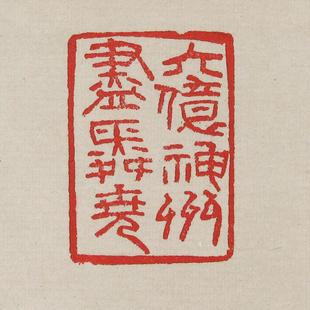 六億神州
盡舜堯